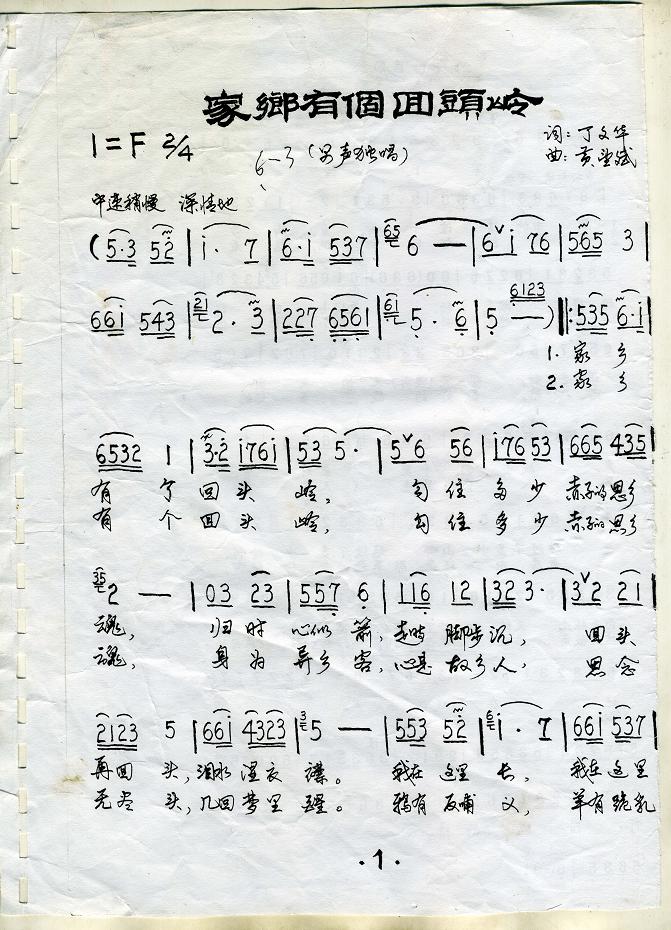 家鄉有個回頭岭
1=F 2/4
6-3 (男声独唱)
词：丁文华
曲：黄
中速稍慢 深情地
(5·3 52 | i· 7 | 6·i 537 | 65 6 — | 6 i 76 | 565 3 |
66i 543 | 21 2· 3 | 227 6561 | 61 5· 6 | 5 — 6123) ‖: 535 6·i |
1. 家 乡
2. 家 乡
6532 1 | 3·2 i76i | 53 5· | 5 6 56 | i76 53 | 665 435 |
有 个 回 头 岭， 勾 住 多 少 赤子的思乡
有 个 回 头 岭， 勾 住 多 少 赤子的思乡
35 2 — | 03 23 | 557 6 | 116 12 | 32 3· | 3 2 21 |
魂， 归 时 心似 箭，走时 脚步 沉， 回 头
魂， 身 为 异乡 客，心是 故乡 人， 思 念
2123 5 | 66i 4323 | 3 5 — | 553 52 | 6 i· 7 | 66i 537 |
再回 头，泪水 湿衣 襟。 我在 这里 长， 我在 这里
无尽 头，几回 梦里 醒。 鸦有 反哺 义， 羊有 跪乳
·1·